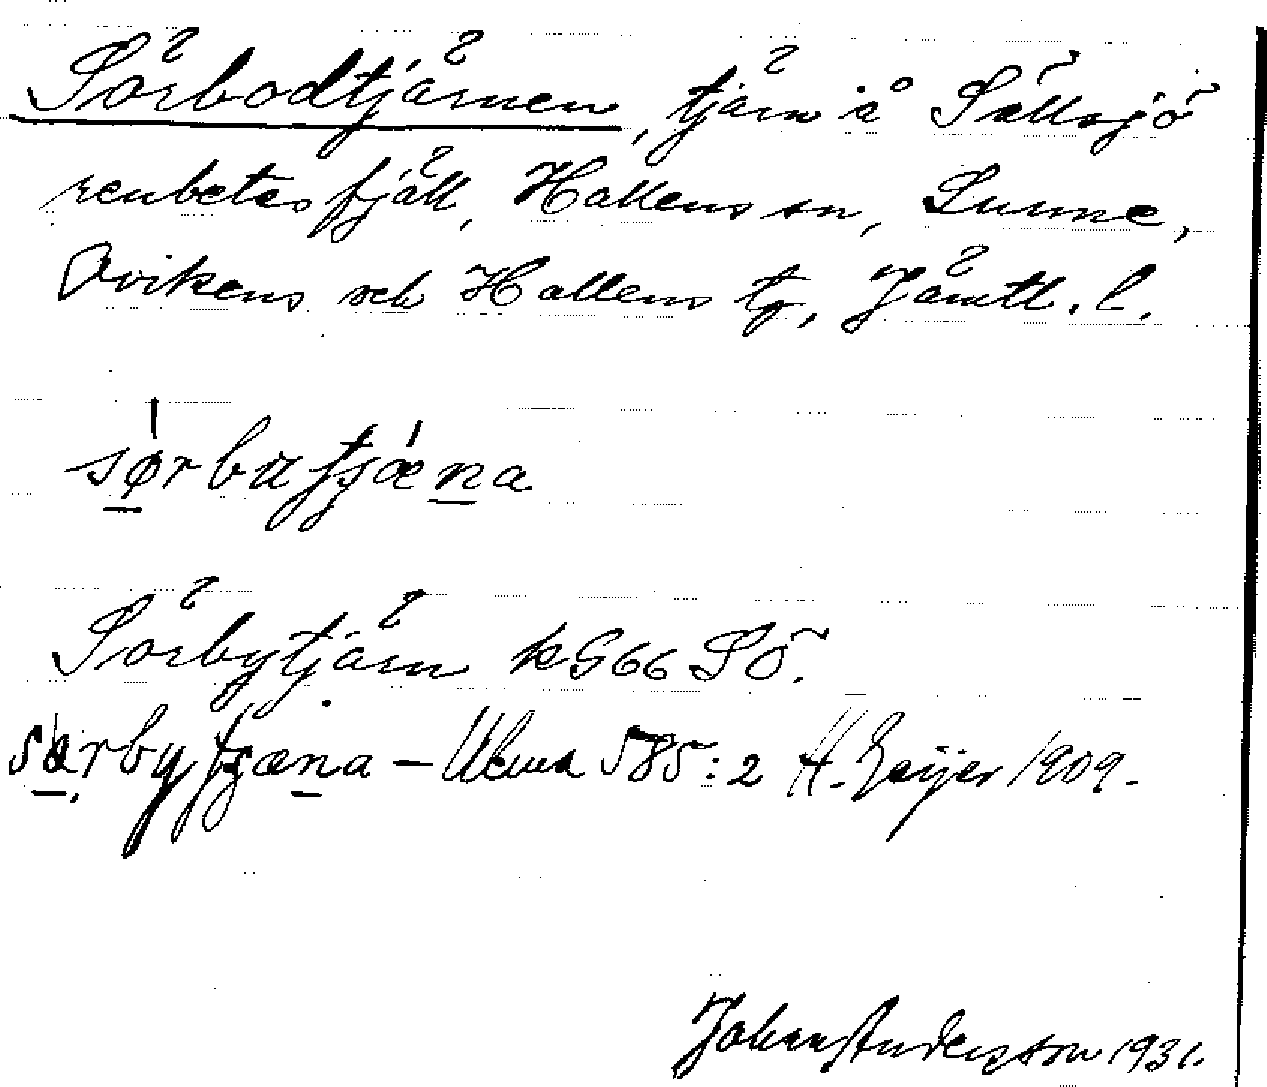 Sörbodtjärnen, tjärn i å Sällsjö
renbetesfjäll, Hallens sn, Sunne,
Ovikens och Hallens tg, Jämtl. l.
sørbutjæna
Sörbytjärn kG66 SÖ.
særbytjæna – Ulma 585:2 H. Geijer 1909.
Johan Andersson 1931.